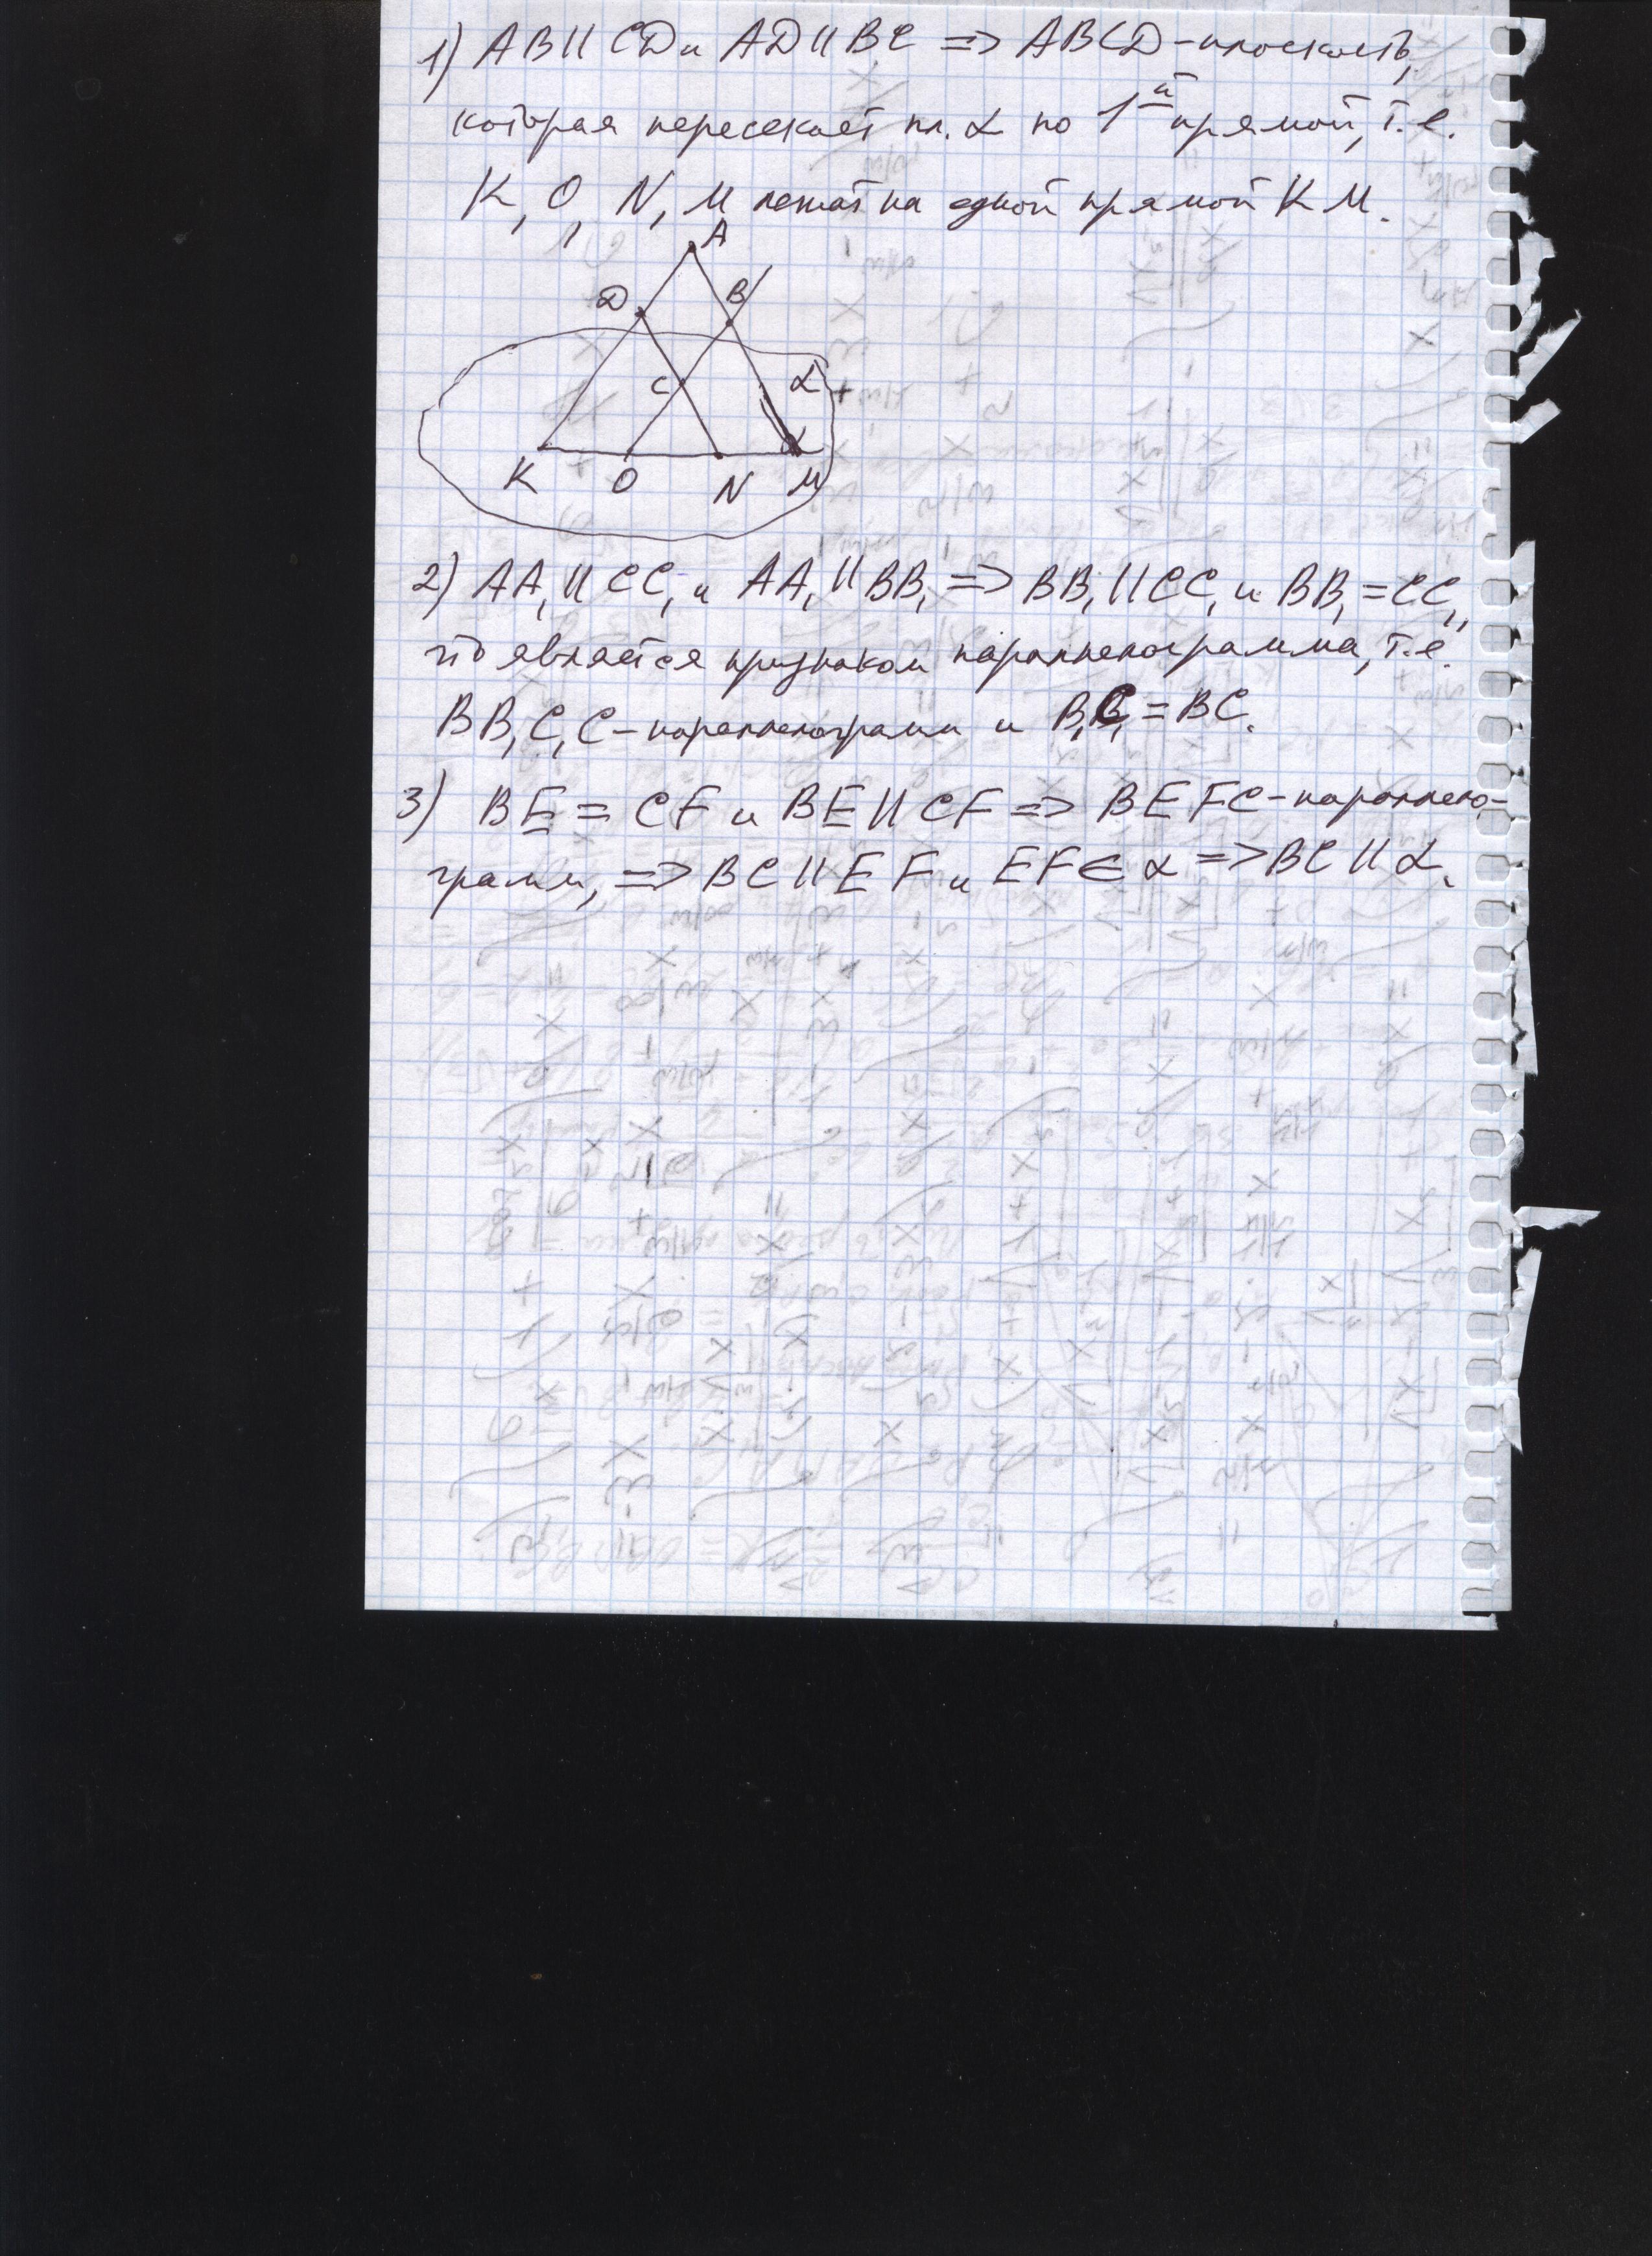 1) AB || CD и AD || BC => ABCD - плоскость,
которая пересекает пл. α по 1ой прямой, т.е.
K, O, N, M лежат на одной прямой KM.
A
D B
C α
K O N M
2) AA₁ || CC₁ и AA₁ || BB₁ => BB₁ || CC₁ и BB₁ = CC₁,
что является признаком параллелограмма, т.е.
BB₁C₁C - параллелограмм и B₁C₁ = BC.
3) BE = CF и BE || CF => BEFC - параллело-
грамм, => BC || EF и EF ∈ α => BC || α.